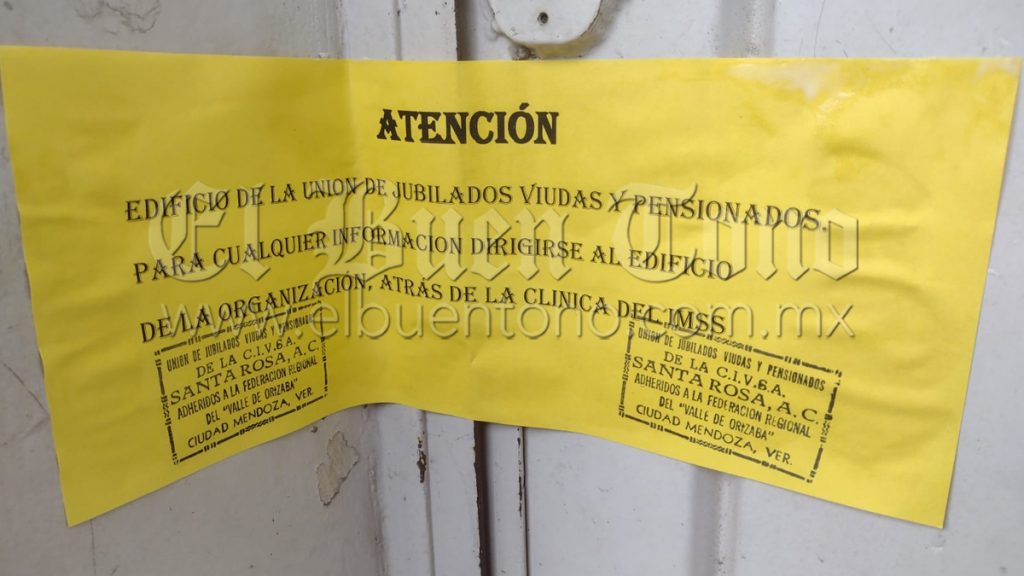 ATENCIÓN
EDIFICIO DE LA UNION DE JUBILADOS VIUDAS Y PENSIONADOS.
PARA CUALQUIER INFORMACION DIRIGIRSE AL EDIFICIO
DE LA ORGANIZACIÓN, ATRÁS DE LA CLINICA DEL IMSS
El Buen Tono
www.elbuentono.com.mx
UNION DE JUBILADOS VIUDAS Y PENSIONADOS
DE LA C.I.V.6A.
SANTA ROSA, A.C.
ADHERIDOS A LA FEDERACION REGIONAL
DEL "VALLE DE ORIZABA"
CIUDAD MENDOZA, VER.
UNION DE JUBILADOS VIUDAS Y PENSIONADOS
DE LA C.I.V.6A.
SANTA ROSA, A.C.
ADHERIDOS A LA FEDERACION REGIONAL
DEL "VALLE DE ORIZABA"
CIUDAD MENDOZA, VER.